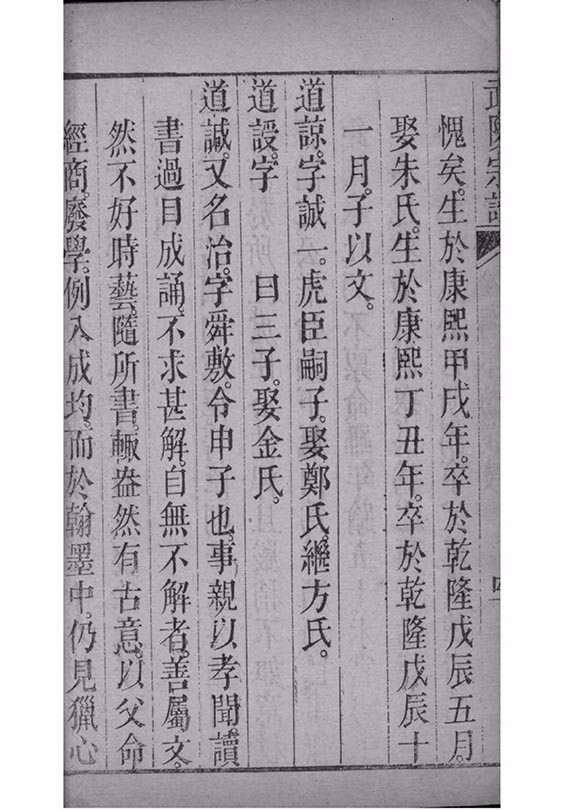 愧矣。生於康熙甲戌年。卒於乾隆戊辰五月。
娶朱氏。生於康熙丁丑年。卒於乾隆戊辰十
一月。子以文。
道諒。字誠一。虎臣嗣子。娶鄭氏。繼方氏。
道設。字　曰三子。娶金氏。
道諴。又名治。字舜敷。令申子也。事親以孝聞。讀
書過目成誦。不求甚解。自無不解者。善屬文。
然不好時藝。隨所書。輙盎然有古意。以父命
經商。廢學。例入成均。而於翰墨中。仍見獵心